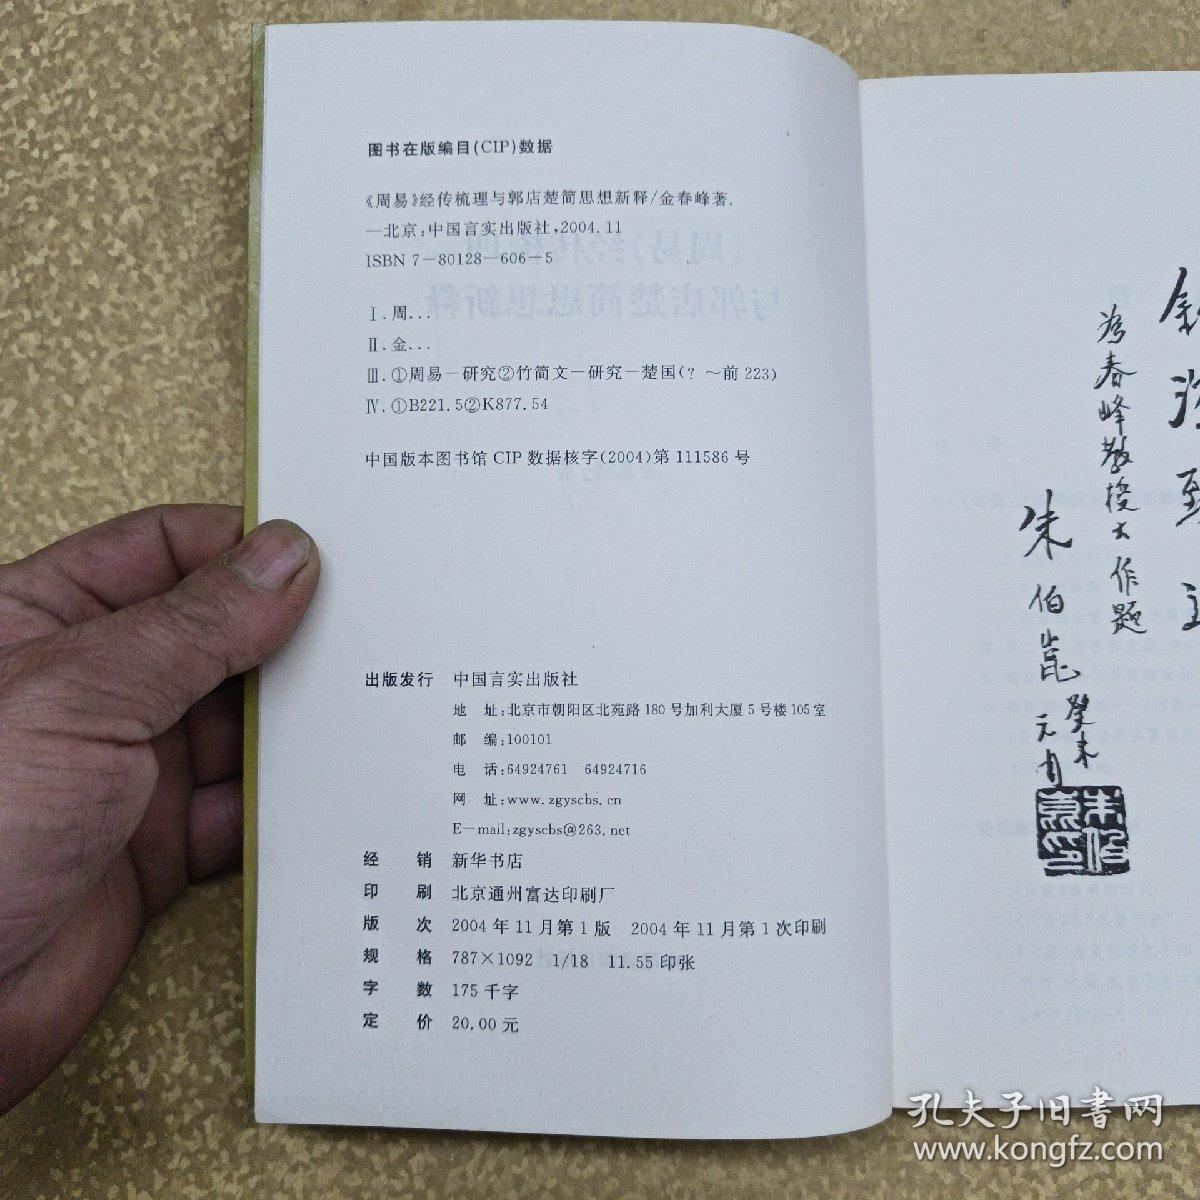 图书在版编目(CIP)数据
《周易》经传梳理与郭店楚简思想新释/金春峰著.
—北京:中国言实出版社,2004.11
ISBN 7-80128-606-5
Ⅰ.周...
Ⅱ.金...
Ⅲ.①周易-研究②竹简文-研究-楚国(? ～前 223)
Ⅳ.①B221.5②K877.54
中国版本图书馆 CIP 数据核字(2004)第 111586 号
出版发行 中国言实出版社
地 址:北京市朝阳区北苑路 180 号加利大厦 5 号楼 105 室
邮 编:100101
电 话:64924761 64924716
网 址:www.zgyscbs.cn
E-mail:zgyscbs@263.net
经 销 新华书店
印 刷 北京通州富达印刷厂
版 次 2004 年 11 月第 1 版 2004 年 11 月第 1 次印刷
规 格 787×1092 1/18 11.55 印张
字 数 175 千字
定 价 20.00 元
为春峰教授大作题
朱伯崑 癸未
元月
孔夫子旧书网
www.kongfz.com